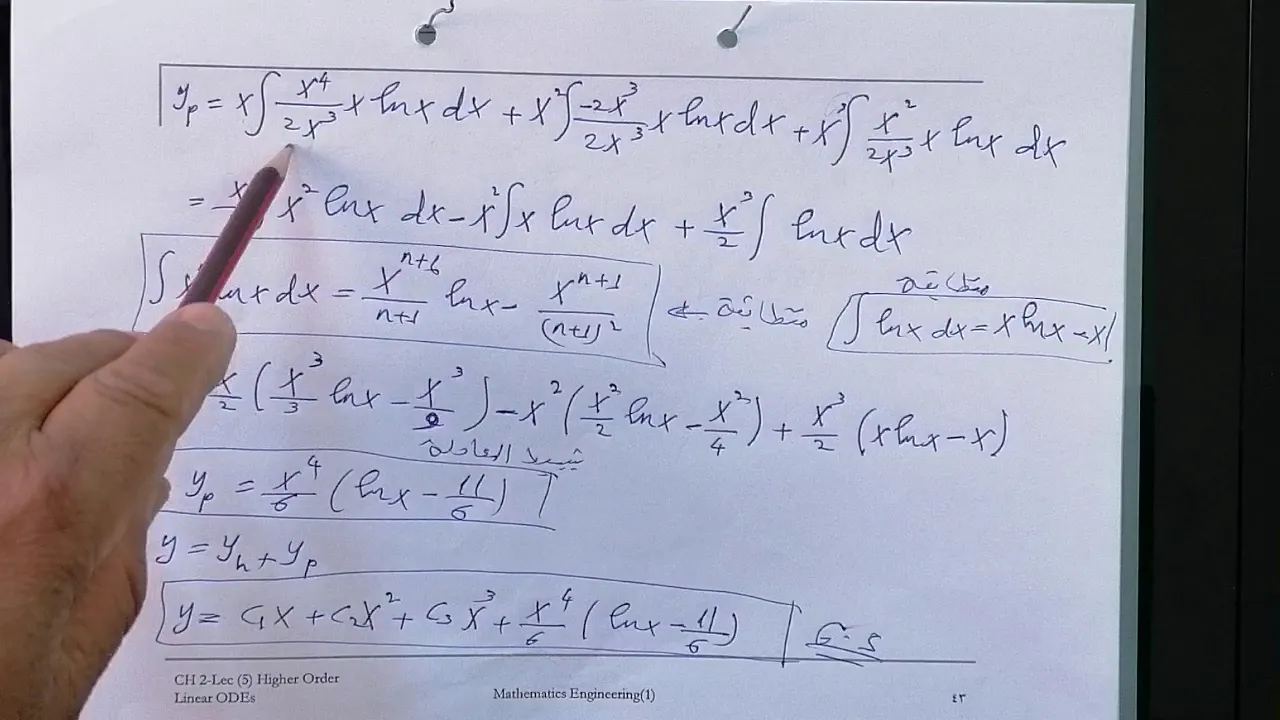 y_p = x ∫ x^4/2x^3 x lnx dx + x^2 ∫ -2x^3/2x^3 x lnx dx + x^3 ∫ x^2/2x^3 x lnx dx
= x x^2 lnx dx - x^2 ∫ x lnx dx + x^3/2 ∫ lnx dx
متطابقة
∫ lnx dx = x^{n+1}/(n+1) lnx - x^{n+1}/(n+1)^2 ← متطابقة ∫ lnx dx = x lnx - x
x/2 (x^3/3 lnx - x^3/9) - x^2 (x^2/2 lnx - x^2/4) + x^3/2 (x lnx - x)
المعادلة
y_p = x^4/6 (lnx - 11/6)
y = y_h + y_p
y = c_1 x + c_2 x^2 + c_3 x^3 + x^4/6 (lnx - 11/6) G.S
CH 2-Lec (5) Higher Order
Linear ODEs
Mathematics Engineering(1)
٤٣